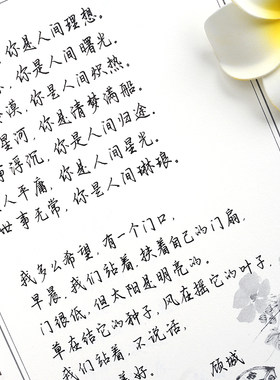 你是人间理想。
你是人间曙光。
漠,你是人间炽热。
星河,你是清梦满船。
浮沉,你是人间归途。
人平庸,你是人间星光。
世事无常,你是人间琳琅。
我多么希望,有一个门口,
早晨,我们站着,扶着自己的门扇,
门很低,但太阳是明亮的。
草在结它的种子,风在摇它的叶子,
我们站着,不说话,
美好。
顾城